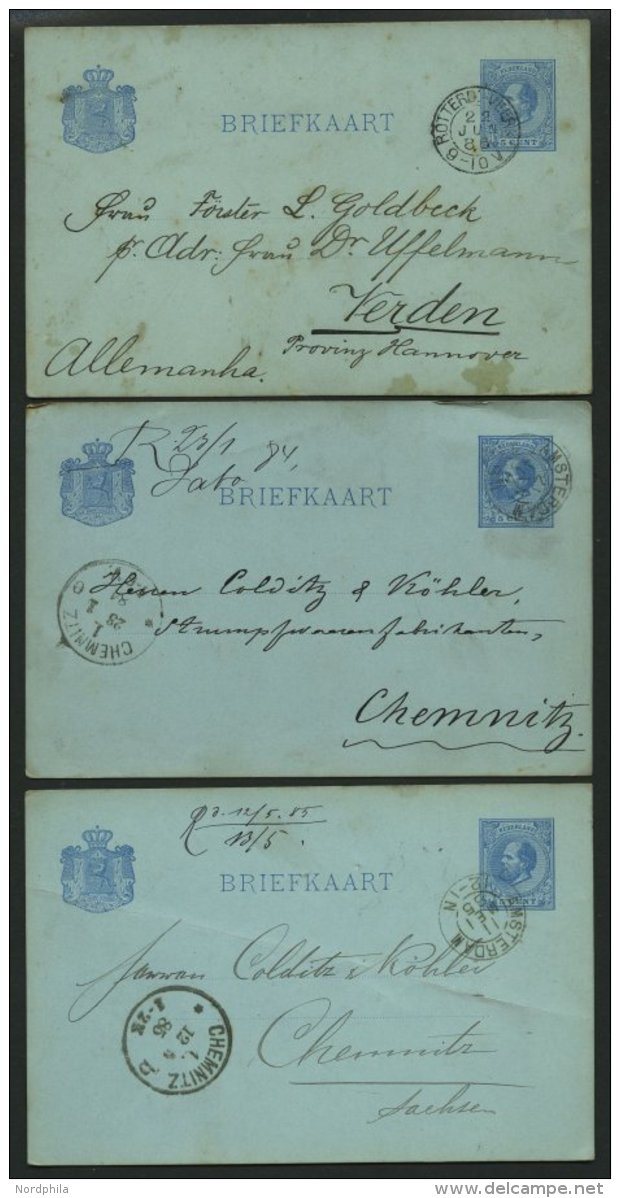 BRIEFKAART
NEDERLAND
5 CENT
22
JUN
10-6
Frau Förster L. Goldbeck
pr. Adr: Frau Dr. Uffelmann
Verden
Provinz Hannover
Allemanha.
R. 23/1 84,
BRIEFKAART
AMSTERDAM
CHEMNITZ
1.
23
1
84
Herren Colditz & Köhler,
Strumpfwaarenfabrikanten,
Chemnitz.
R d. 12/5.85
13/5.
BRIEFKAART
NEDERLAND
5 CENT
AMSTERDAM
Herren Colditz & Köhler
CHEMNITZ
1.
12
5
85
Chemnitz
Sachsen
Nordphila
delcampe.net